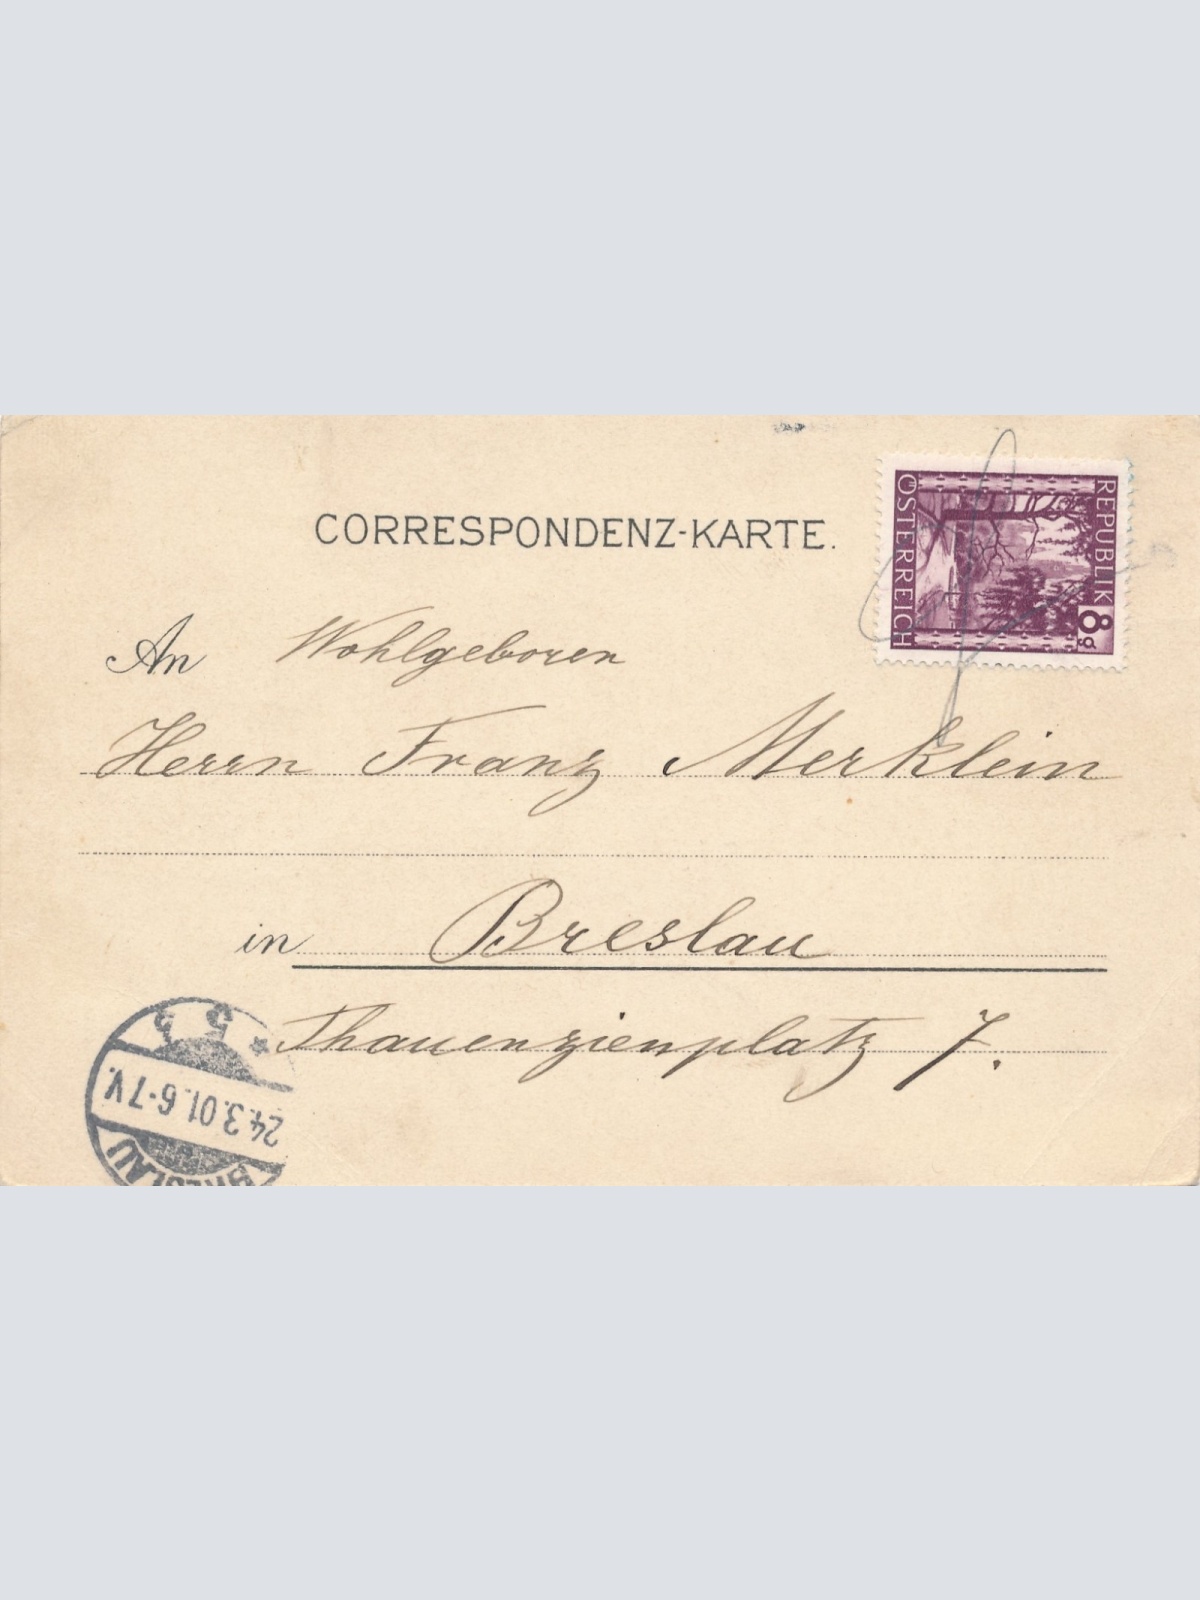 CORRESPONDENZ-KARTE.
REPUBLIK
8g
ÖSTERREICH
An Wohlgeboren
Herrn Franz Merklein
in Breslau
Thauenzienplatz 7.
BRESLAU
24.3.01.6-7V.
* 5